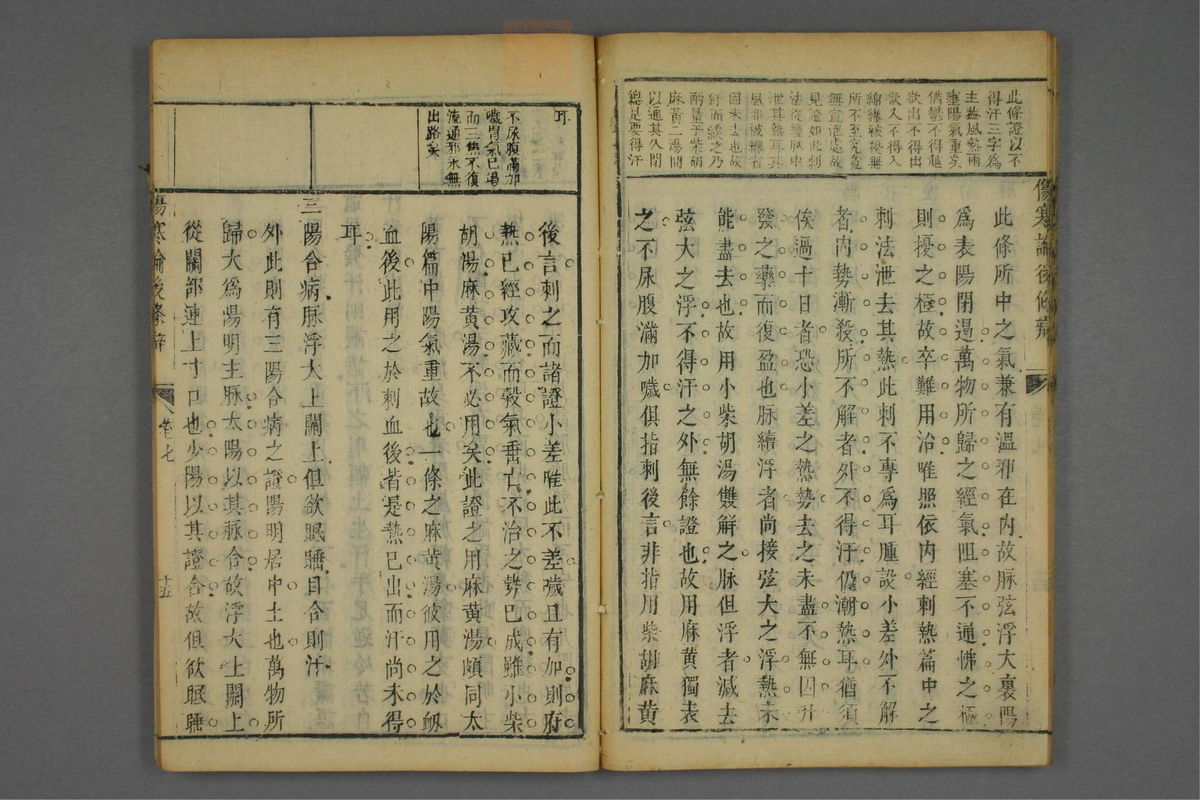 此條證以不
得汗三字爲
主蓋風熱兩
壅陽氣重矣
怫鬱不得越
欲出不得出
欲入不得入
綿纏被擾無
所不至究竟
無宣泄處故
見證如此刺
法從經脉中
泄其熱耳其
風邪被纏者
固未去也故
紆而緩之乃
酌量于柴胡
麻黃二湯間
以通其久閉
總是要得汗
傷寒論後條辯
此條所中之氣兼有溫邪在內故脉弦浮大裏陽
爲表陽閉遏萬物所歸之經氣阻塞不通怫之極
則擾之極故卒難用治唯照依內經刺熱篇中之
刺法泄去其熱此刺不專爲耳腫設小差外不解
者內勢漸殺所不解者外不得汗仍潮熱耳猶須
俟過十日者恐小差之熱勢去之未盡不無因升
發之藥而復盈也脉續浮者尚接弦大之浮熱未
能盡去也故用小柴胡湯雙解之脉但浮者減去
弦大之浮不得汗之外無餘證也故用麻黃獨表
之不尿腹滿加噦俱指刺後言非指用柴胡麻黃
耳
不尿腹滿加
噦胃氣已竭
而三焦不復
流通邪永無
出路矣
後言刺之而諸證小差唯此不差噦且有加則府
熱已經攻藏而穀氣垂亡不治之勢已成雖小柴
胡湯麻黃湯不必用矣此證之用麻黃湯頗同太
陽篇中陽氣重故也一條之麻黃湯彼用之於衂
血後此用之於刺血後者是熱已出而汗尚未得
耳
三陽合病脉浮大上關上但欲眠睡目合則汗
外此則有三陽合病之證陽明居中土也萬物所
歸大爲陽明主脉太陽以其脉合故浮大上關上
從關部連上寸口也少陽以其證合故但欲眠睡
傷寒論後條辯
卷七
十五